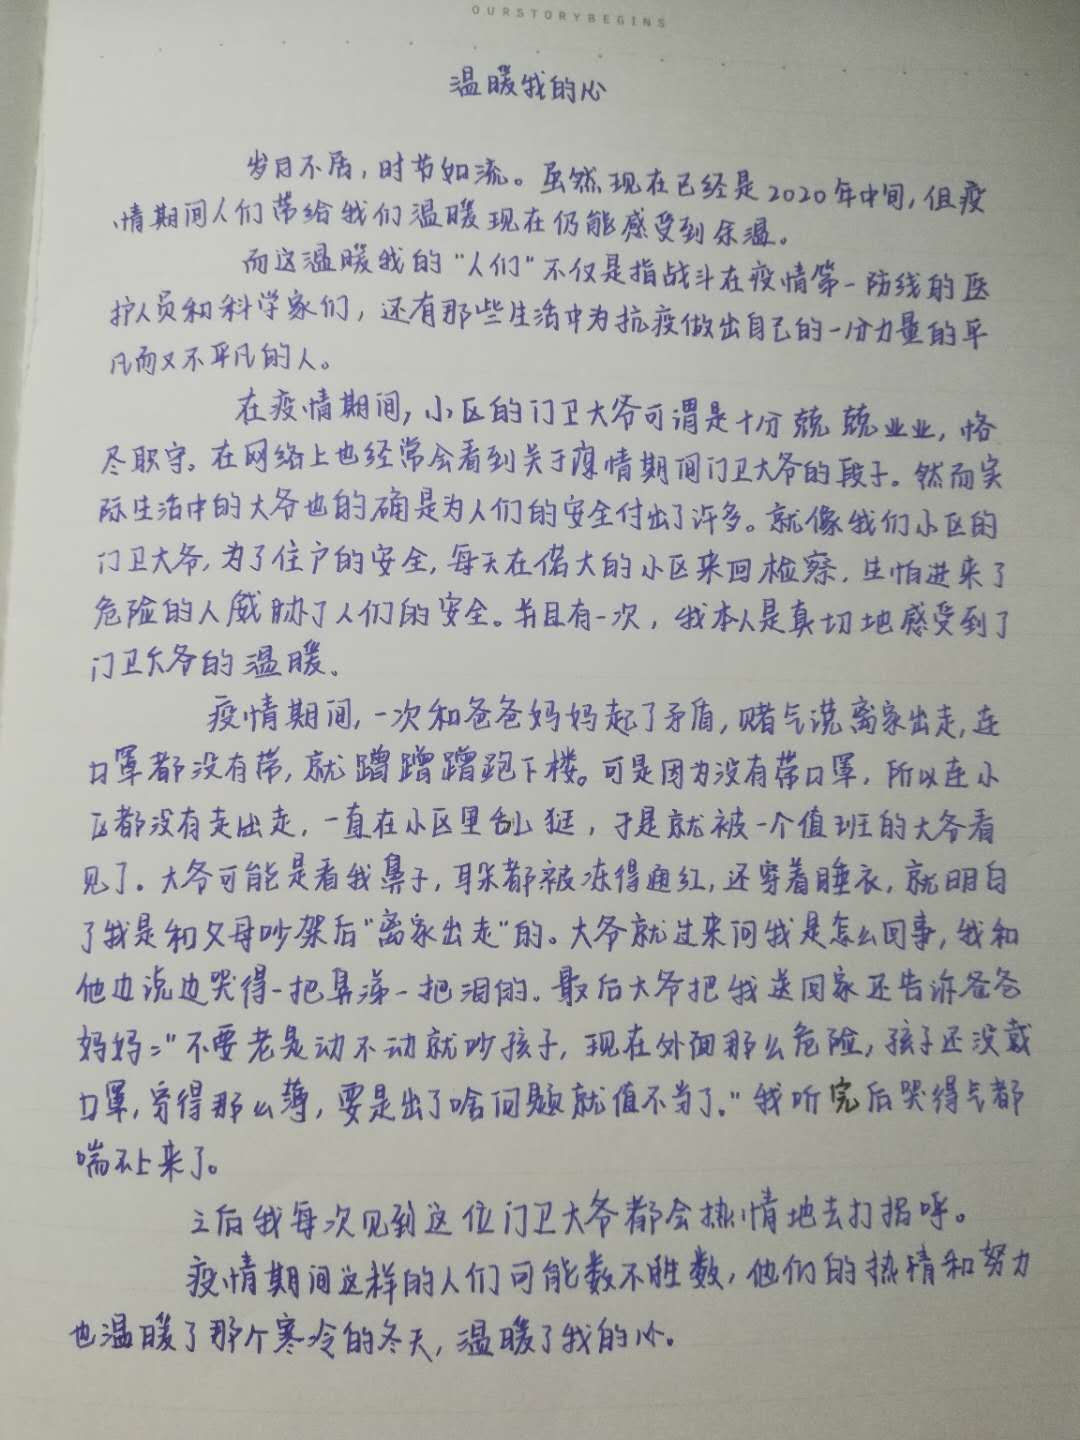 OURSTORYBEGINS
温暖我的心
岁月不居，时节如流。虽然现在已经是2020年中间，但疫
情期间人们带给我们温暖现在仍能感受到余温。
而这温暖我的“人们”不仅是指战斗在疫情第一防线的医
护人员和科学家们，还有那些生活中为抗疫做出自己的一分力量的平
凡而又不平凡的人。
在疫情期间，小区的门卫大爷可谓是十分兢兢业业，恪
尽职守。在网络上也经常会看到关于疫情期间门卫大爷的段子。然而实
际生活中的大爷也的确是为人们的安全付出了许多。就像我们小区的
门卫大爷，为了住户的安全，每天在偌大的小区来回检察，生怕进来了
危险的人威胁了人们的安全。书且有一次，我本人是真切地感受到了
门卫大爷的温暖。
疫情期间，一次和爸爸妈妈起了矛盾，赌气说离家出走，连
口罩都没有带，就蹭蹭蹭跑下楼。可是因为没有带口罩，所以连小
区都没有走出走，一直在小区里乱逛，于是就被一个值班的大爷看
见了。大爷可能是看我鼻子，耳朵都被冻得通红，还穿着睡衣，就明白
了我是和父母吵架后“离家出走”的。大爷就过来问我是怎么回事，我和
他边说边哭得一把鼻涕一把泪的。最后大爷把我送回家还告诉爸爸
妈妈：“不要老是动不动就吵孩子，现在外面那么危险，孩子还没戴
口罩，穿得那么薄，要是出了啥问题就值不当了。”我听完后哭得气都
喘不上来了。
之后我每次见到这位门卫大爷都会热情地去打招呼。
疫情期间这样的人们可能数不胜数，他们的热情和努力
也温暖了那个寒冷的冬天，温暖了我的心。